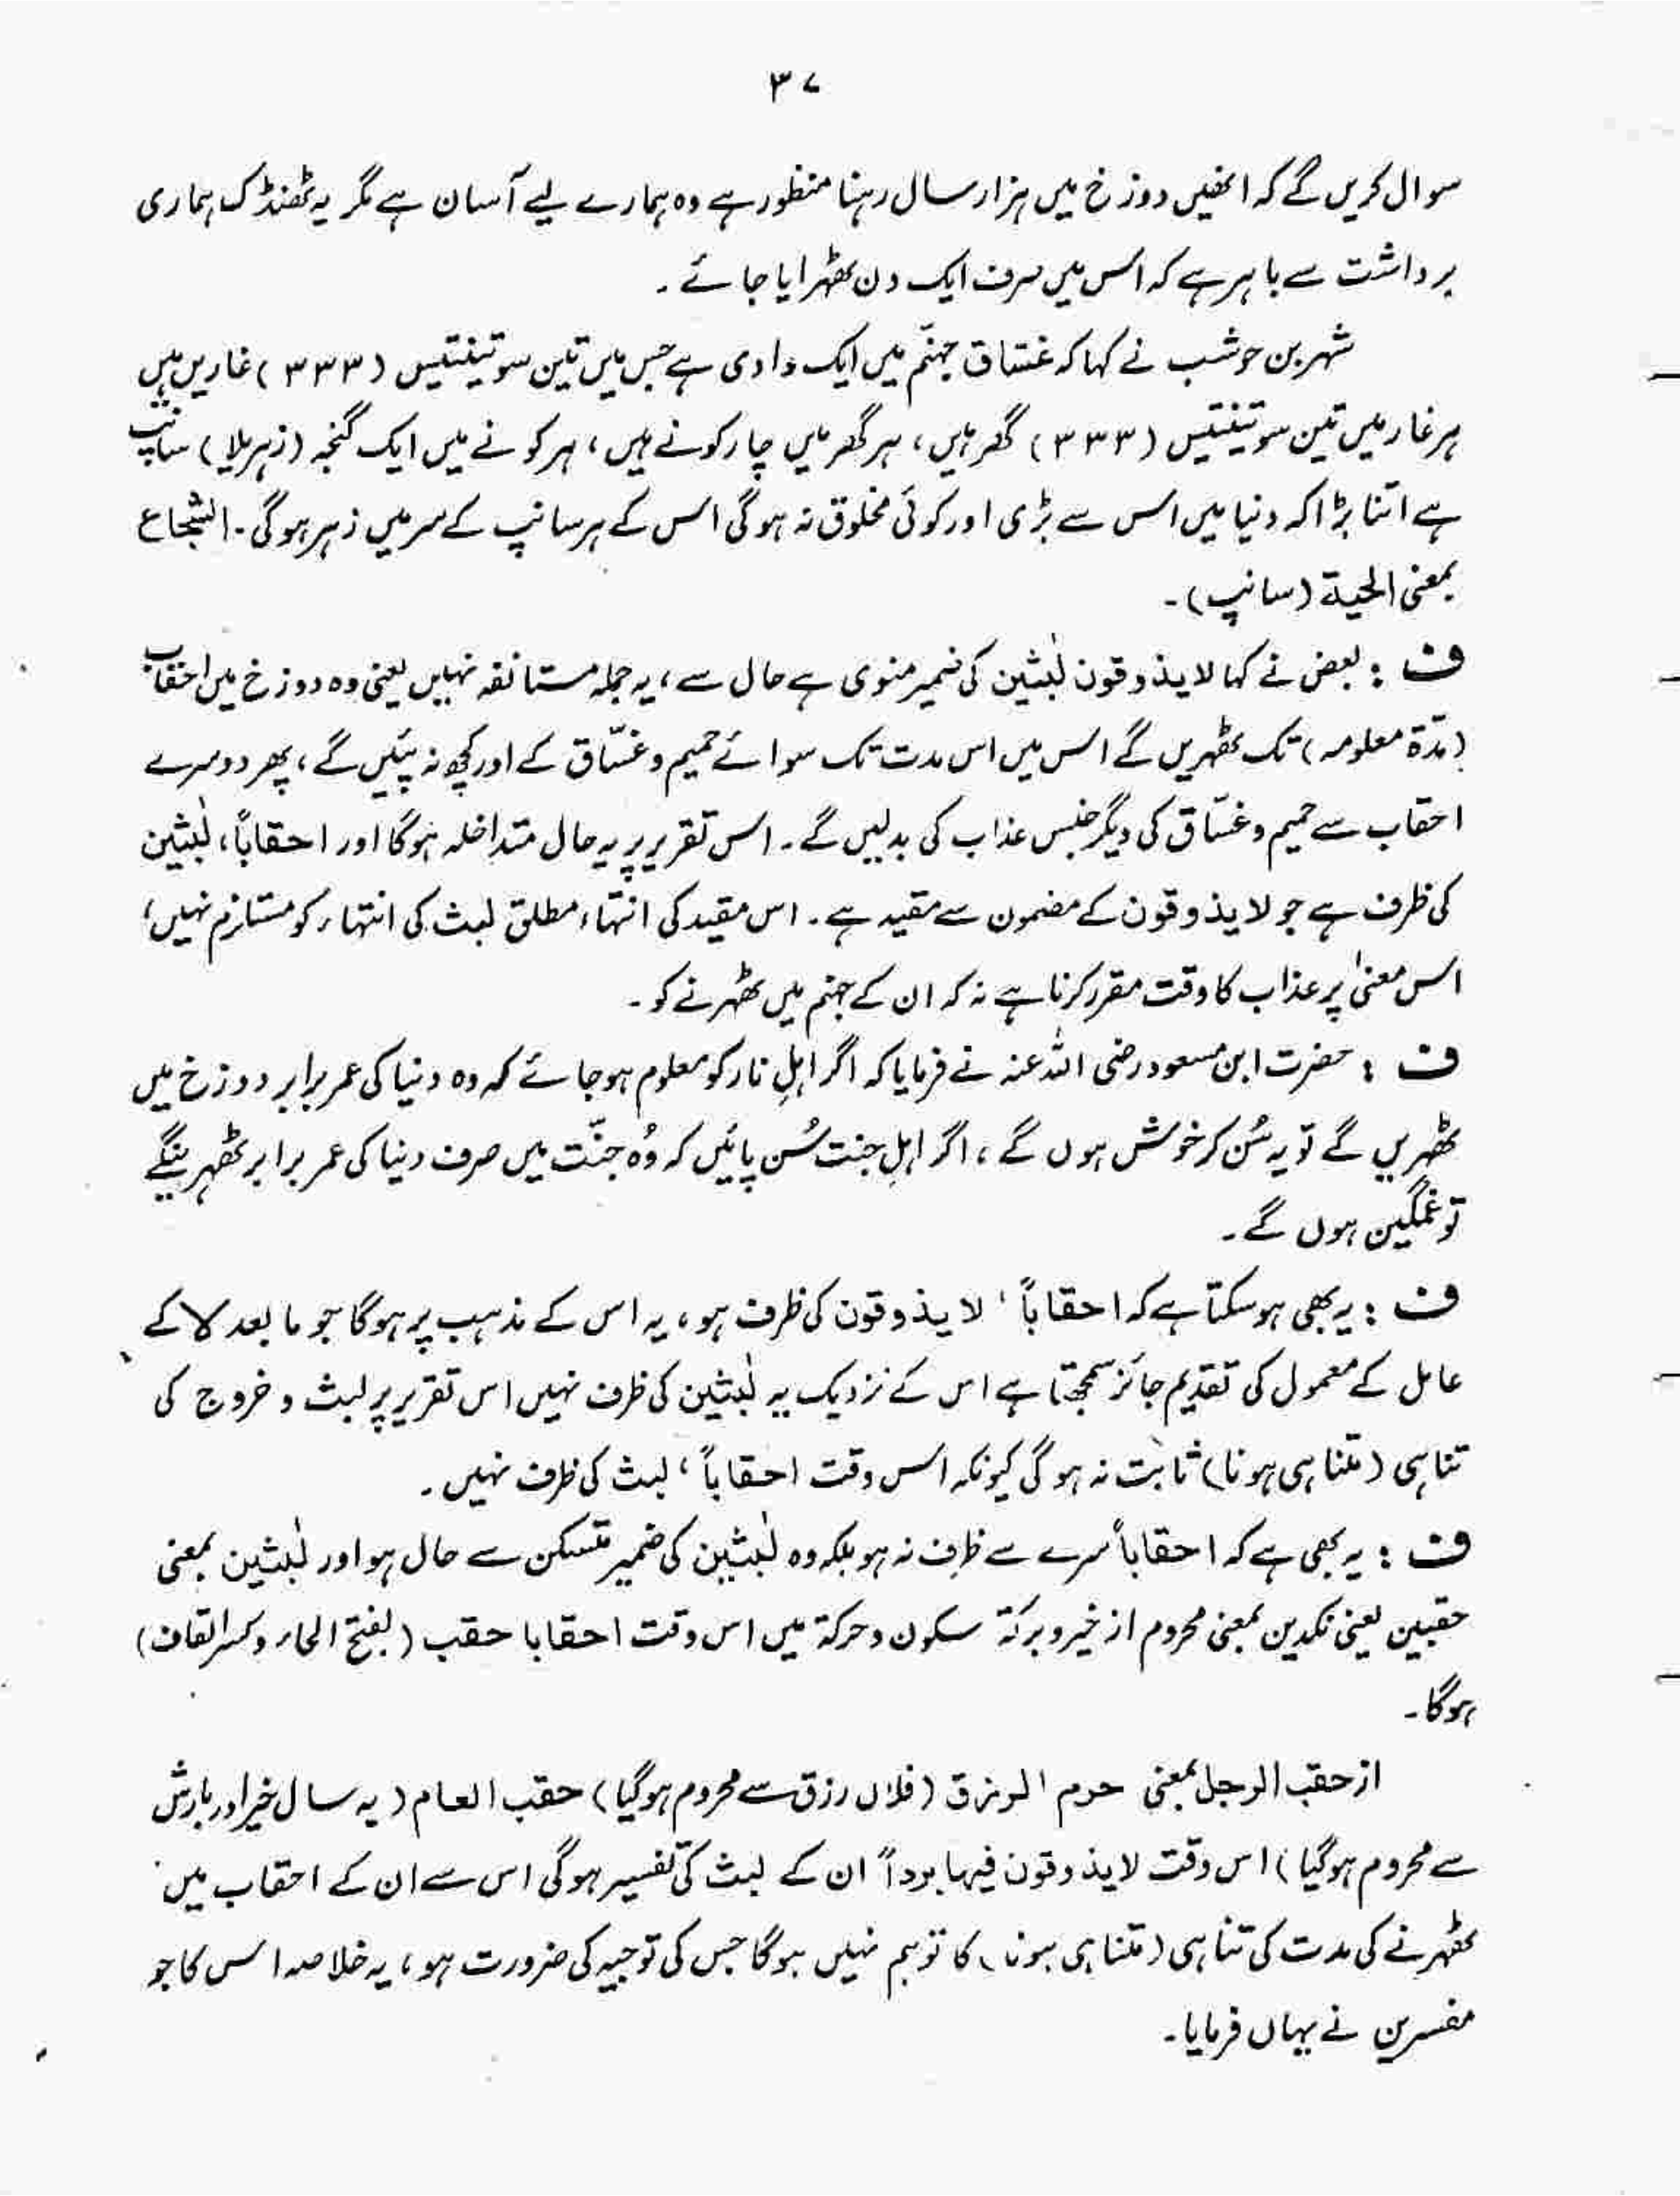 ۳۷
سوال کریں گے کہ انھیں دوزخ میں ہزار سال رہنا منظور ہے وہ ہمارے لیے آسان ہے مگر یہ ٹھنڈک ہماری
برداشت سے باہر ہے کہ اس میں صرف ایک دن ٹھہرایا جائے۔
شہر بن حوشب نے کہا کہ غسّاق جہنّم میں ایک وادی ہے جس میں تین سو تینتیس (۳۳۳) غاریں ہیں
ہر غار میں تین سو تینتیس (۳۳۳) گھر ہیں، ہر گھر میں چار کونے ہیں، ہر کونے میں ایک گنجہ (زہریلا) سانپ
ہے اتنا بڑا کہ دنیا میں اس سے بڑی اور کوئی مخلوق نہ ہوگی اس کے ہر سانپ کے سر میں زہر ہوگی۔ الشجاع
بمعنی الحیۃ (سانپ)۔
ف : بعض نے کہا لا یذوقون لٰبثین کی ضمیر منوی ہے حال سے، یہ جملہ مستانفہ نہیں یعنی وہ دوزخ میں احقاب
(مدّۃ معلومہ) تک ٹھہریں گے اس میں اس مدت تک سوائے حمیم و غسّاق کے اور کچھ نہ پئیں گے، پھر دوسرے
احقاب سے حمیم و غسّاق کی دیگر جنس عذاب کی بدلیں گے۔ اس تقریر پر یہ حال متداخلہ ہوگا اور احقاباً، لٰبثین
کی ظرف ہے جو لا یذوقون کے مضمون سے مقید ہے۔ اس مقید کی انتہاء مطلق لبث کی انتہاء کو مستلزم نہیں،
اس معنیٰ پر عذاب کا وقت مقرر کرنا ہے نہ کہ ان کے جہنم میں ٹھہرنے کو۔
ف : حضرت ابن مسعود رضی اللہ عنہ نے فرمایا کہ اگر اہلِ نار کو معلوم ہوجائے کہ وہ دنیا کی عمر برابر دوزخ میں
ٹھہریں گے تو یہ سُن کر خوش ہوں گے، اگر اہلِ جنت سُن پائیں کہ وُہ جنّت میں صرف دنیا کی عمر برابر ٹھہرینگے
تو غمگین ہوں گے۔
ف : یہ بھی ہوسکتا ہے کہ احقاباً ' لا یذوقون کی ظرف ہو، یہ اس کے مذہب پر ہوگا جو ما بعد لا کے
عامل کے معمول کی تقدیم جائز سمجھتا ہے اس کے نزدیک یہ لٰبثین کی ظرف نہیں اس تقریر پر لبث و خروج کی
تناہی (متناہی ہونا) ثابت نہ ہوگی کیونکہ اس وقت احقاباً، لبث کی ظرف نہیں۔
ف : یہ بھی ہے کہ احقاباً سرے سے ظرف نہ ہو بلکہ وہ لٰبثین کی ضمیر متسکن سے حال ہو اور لٰبثین بمعنی
حقبین یعنی نکدین بمعنی محروم از خیر و برکۃ سکون و حرکۃ میں اس وقت احقابا حقب (بفتح الحاء وکسر القاف)
ہوگا۔
از حقب الرجل بمعنی حرم الرزق (فلاں رزق سے محروم ہوگیا) حقب العام (یہ سال خیر اور بارش
سے محروم ہوگیا) اس وقت لا یذوقون فیہا برداً ان کے لبث کی تفسیر ہوگی اس سے ان کے احقاب میں
ٹھہرنے کی مدت کی تناہی (متناہی ہونا) کا توہم نہیں ہوگا جس کی توجیہ کی ضرورت ہو، یہ خلاصہ اس کا جو
مفسرین نے یہاں فرمایا۔